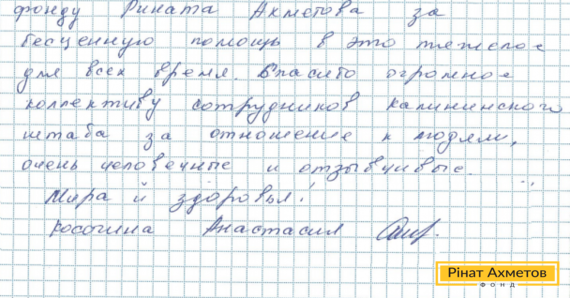 фонду Рината Ахметова за
бесценную помощь в это тяжелое
для всех время. Спасибо огромное
коллективу сотрудников Калининского
штаба за отношение к людям,
очень человечные и отзывчивые.
Мира и здоровья!
Анастасия
Рінат Ахметов
ФОНД